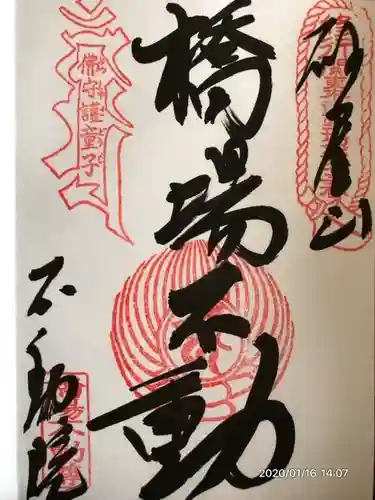 砂尾山
橋場不動
不動院
常守護童子
2020/01/16 14:07